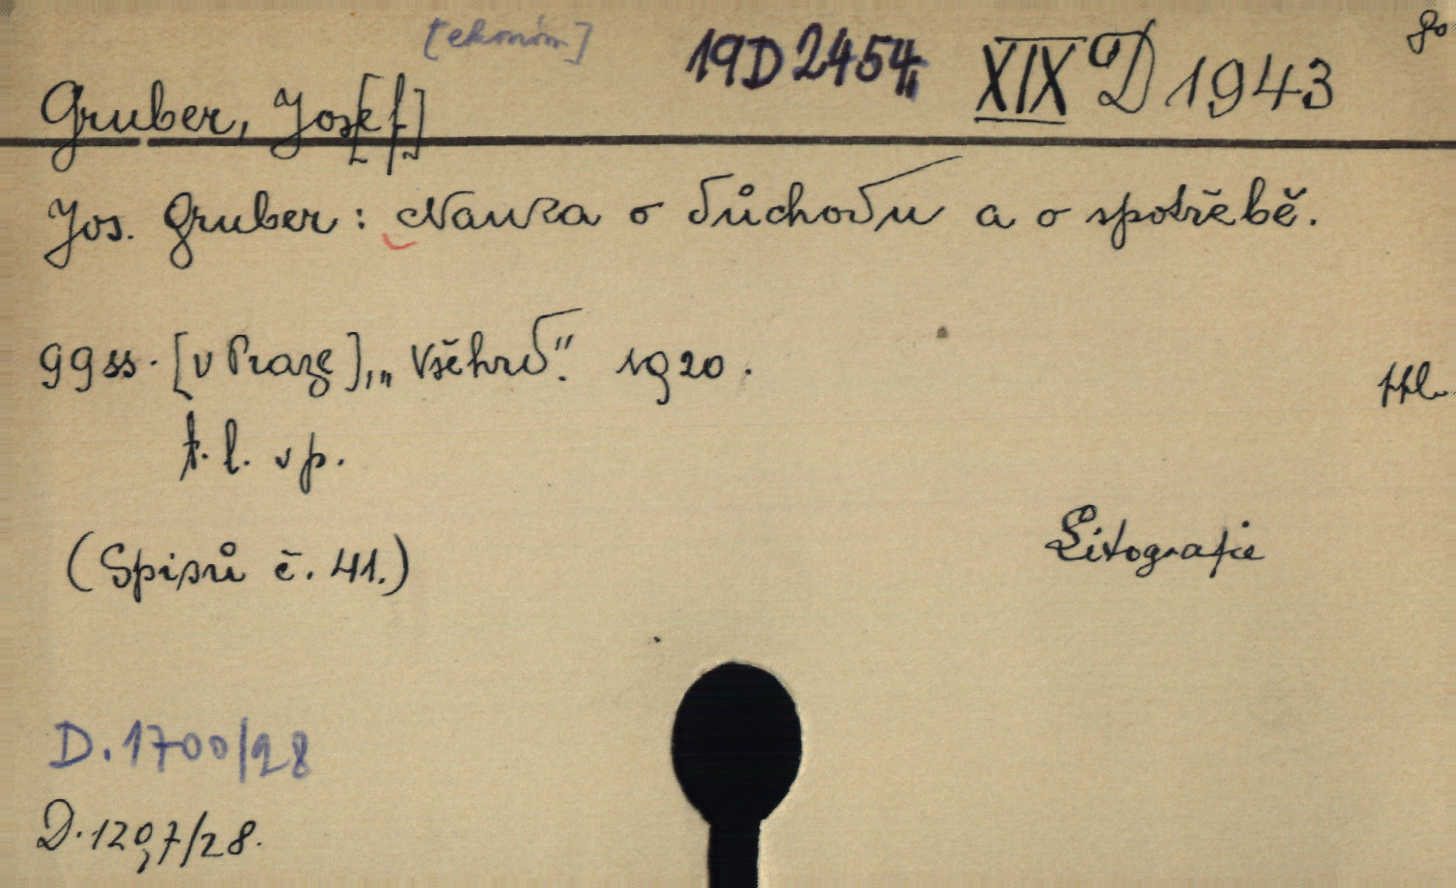 [ekonom] 19D2454 XIX D 1943
Gruber, Jos[ef]
Jos. Gruber: Nauka o důchodu a o spotřebě.
99 ss. [v Praze], „Všehrd“. 1920.
t. l. v p.
(Spisů č. 41.)
Litografie
D. 1700/28
D. 1207/28.